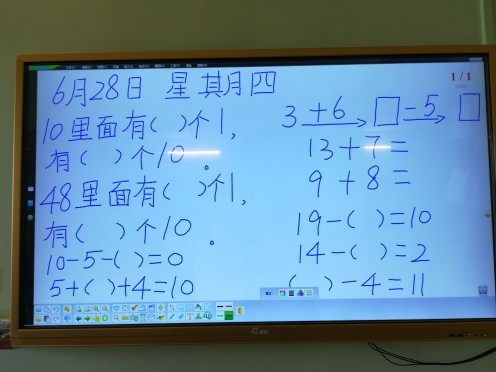 6月28日 星期四
10里面有( )个1,
有( )个10。
48里面有( )个1,
有( )个10。
10-5-( )=0
5+( )+4=10
1/1
3 +6 → □ -5 → □
13+7=
9+8=
19-( )=10
14-( )=2
( )-4=11